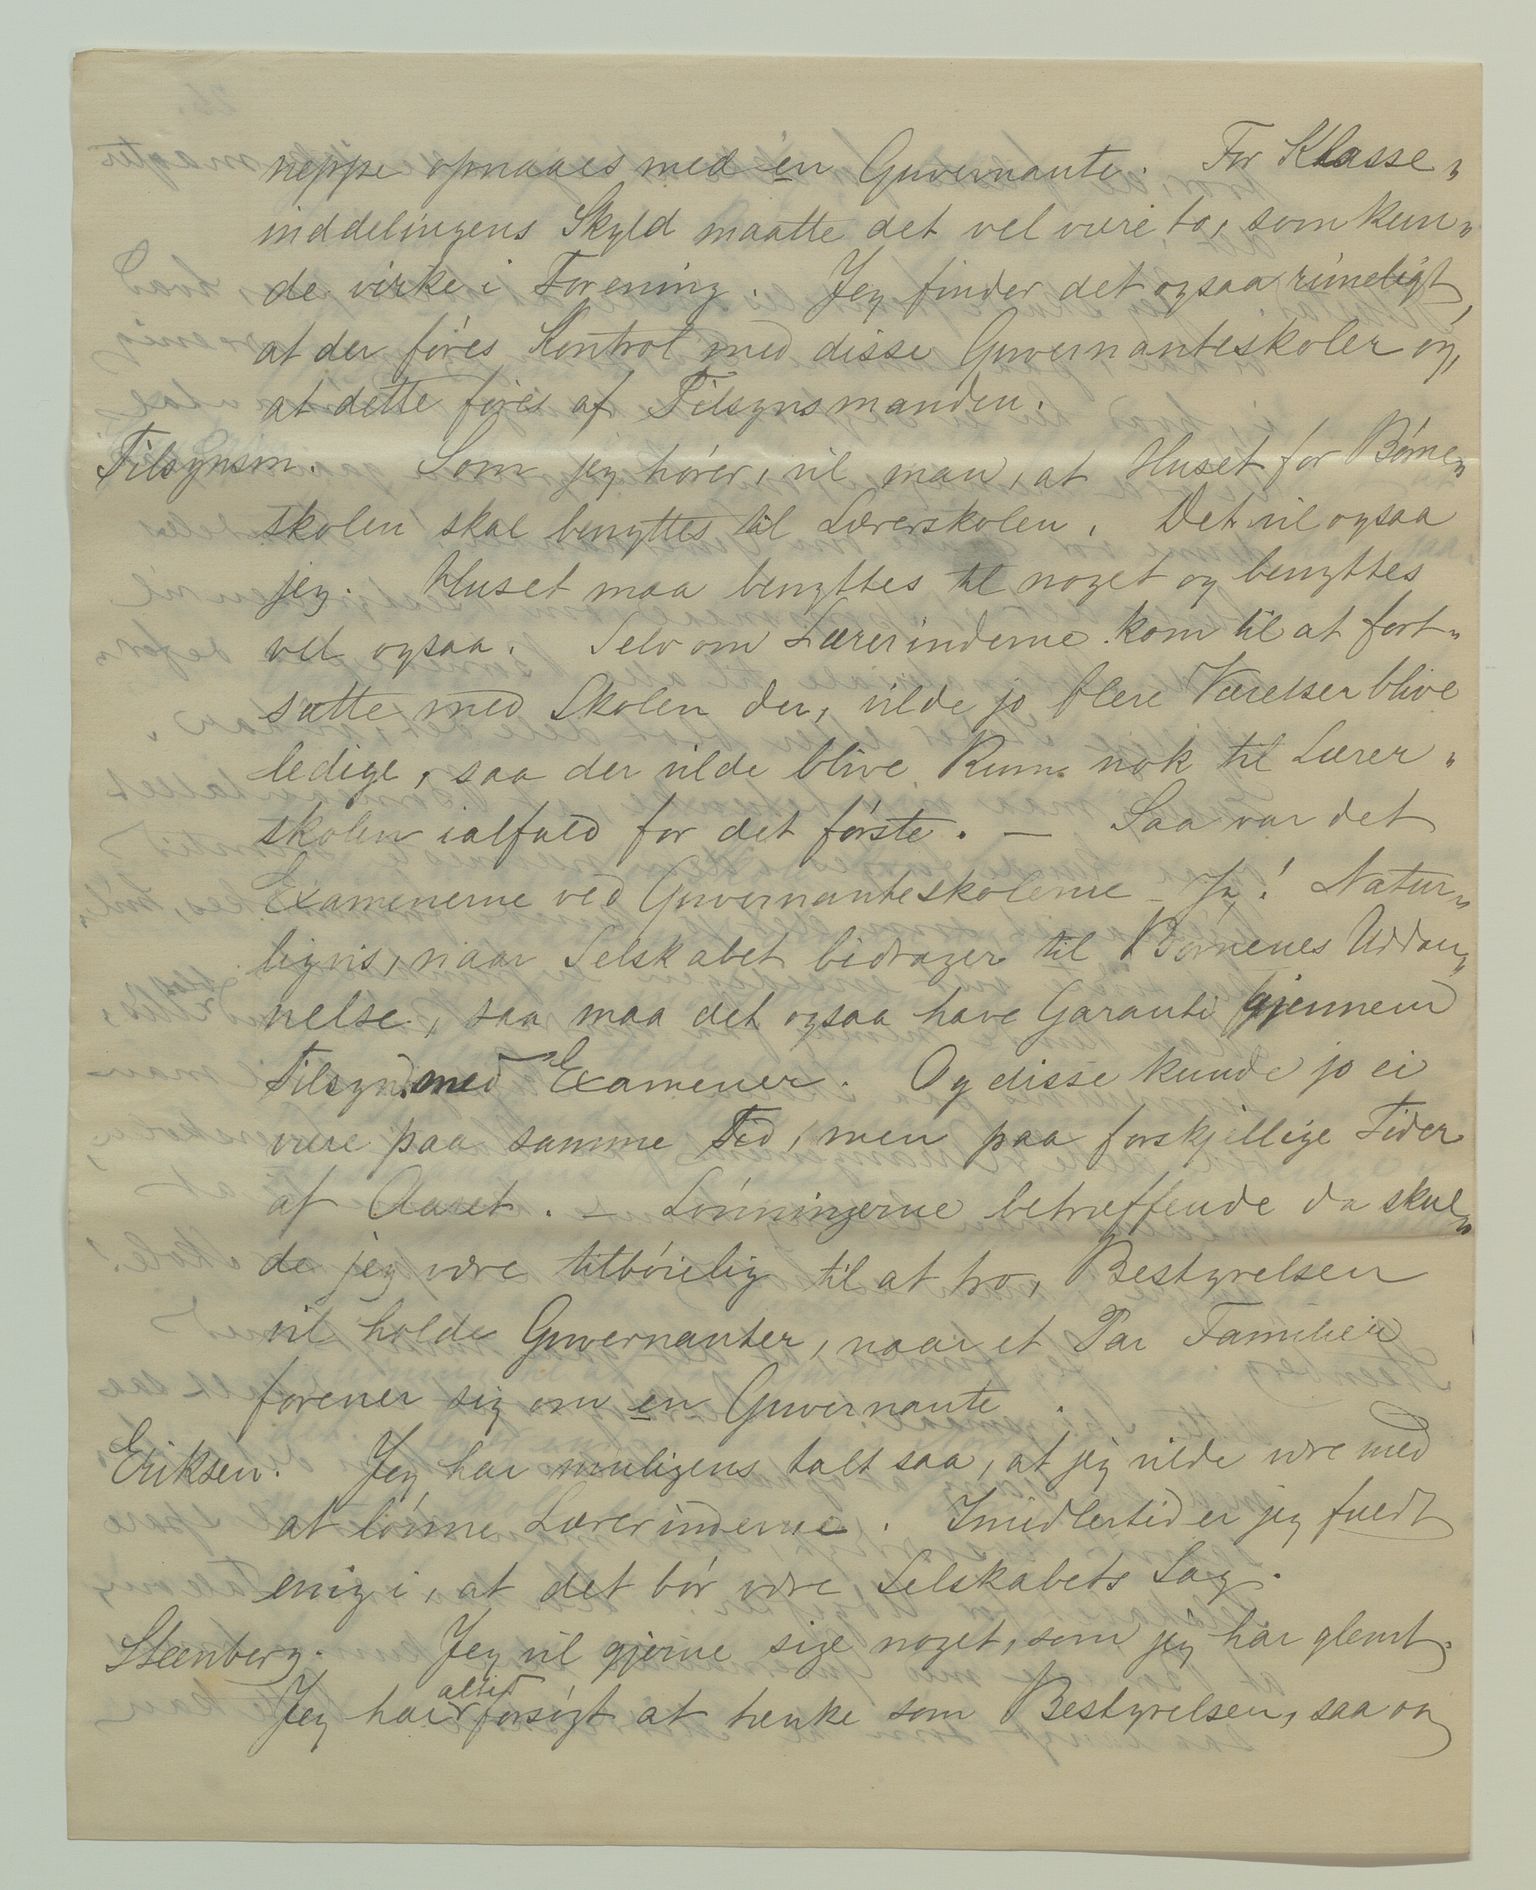 neppe opnaaes med én Guvernante. For Klasse„
inddelingens Skyld maatte det vel være to, som kun„
de virke i Forening. Jeg finder det ogsaa rimeligt,
at der føres Kontrol med disse Guvernanteskoler og,
at dette føres af Tilsynsmanden.
Tilsynsm. Som jeg hører, vil man, at Huset for Børne„
skolen skal benyttes til Lærerskolen. Det vil ogsaa
jeg. Huset maa benyttes til noget og benyttes
vel ogsaa. Selv om Lærerinderne kom til at fort„
sætte med Skolen der, vilde jo flere Værelser blive
ledige, saa der vilde blive Rum nok til Lærer„
skolen ialfald for det første. — Saa var det
Examenerne ved Guvernanteskolerne – Ja! Natur„
ligvis, naar Selskabet bidrager til Børnenes Uddan„
nelse, saa maa det ogsaa have Garanti gjennem
Tilsyn med Examener. Og disse kunde jo ei
være paa samme Tid, men paa forskjellige Tider
af Aaret. — Lønningerne betreffende da skul„
de jeg være tilbøielig til at tro, Bestyrelsen
vil holde Guvernanter, naar et Par Familier
forener sig om en Guvernante.
Eriksen. Jeg har muligens talt saa, at jeg vilde være med
at lønne Lærerinderne. Imidlertid er jeg fuldt
enig i, at det bør være Selskabets Sag.
Steenberg. Jeg vil gjerne sige noget, som jeg har glemt.
Jeg har altid forsøgt at tænke som Bestyrelsen, saa og